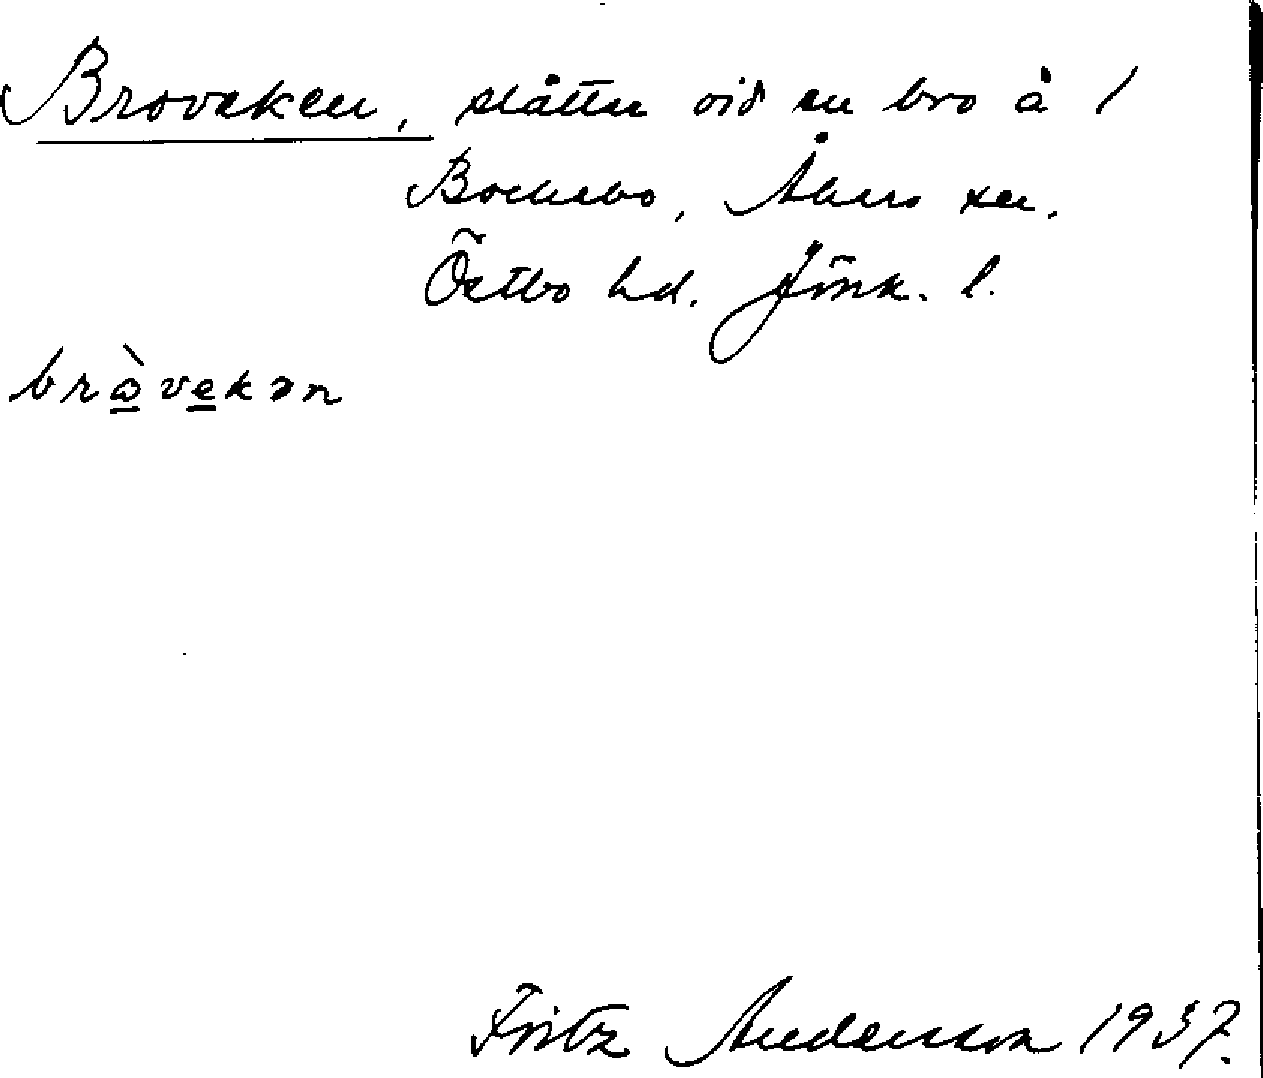 Broveken, slåtter vid en bro å 1
Bockebo, Åkers sn.
Östbo hd. Jönk. l.
brὼvekən
Fritz Andersson 1937.